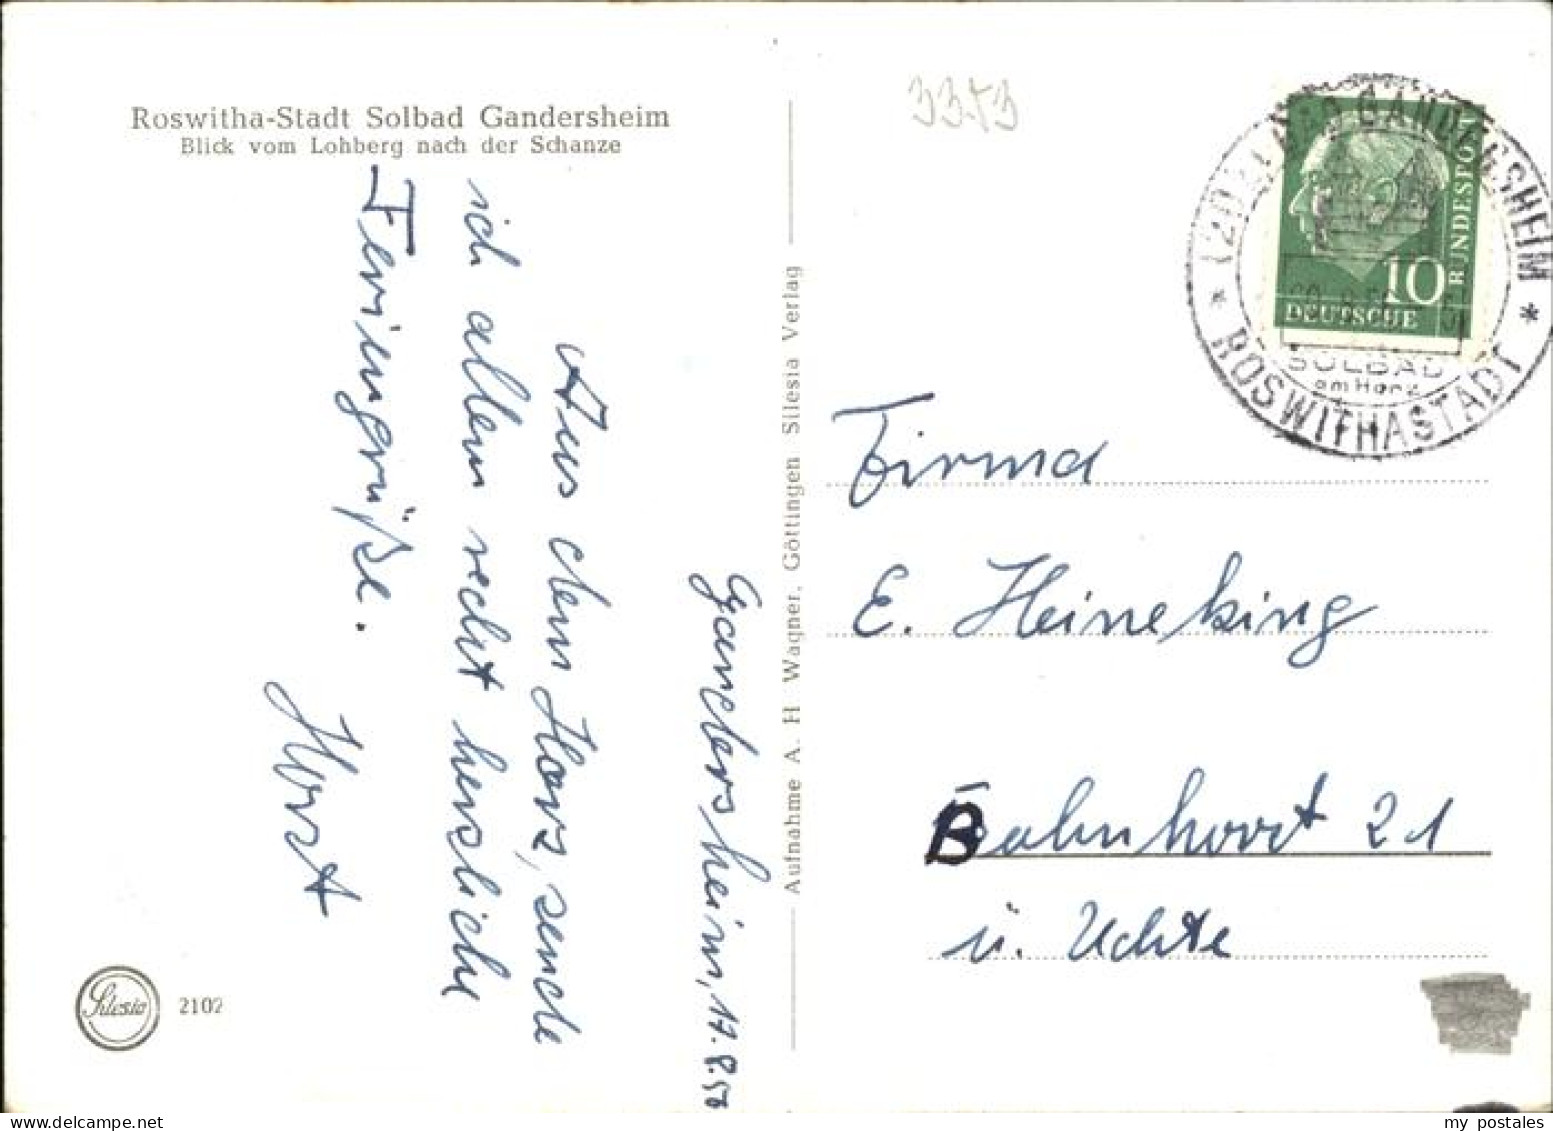 Roswitha-Stadt Solbad Gandersheim
Blick vom Lohberg nach der Schanze
Gandersheim, 17.8.56
Aus dem Harz, sende
ich allen recht herzliche
Feriengrüße.
Horst
Silesia
2102
Aufnahme A. H Wagner, Göttingen Silesia Verlag
BAD GANDERSHEIM
SOLBAD
am Harz
* ROSWITHASTADT *
10
DEUTSCHE
BUNDESPOST
Firma
E. Heineking
Bahnhorst 21
ü. Uchte
my postales